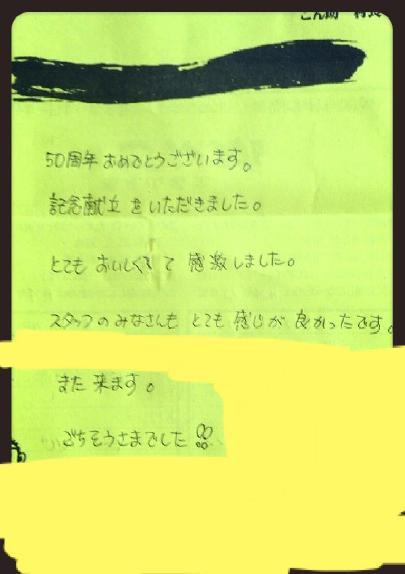 50周年おめでとうございます。
記念献立をいただきました。
とてもおいしくて感激しました。
スタッフのみなさんもとても感じが良かったです。
また来ます。
ごちそうさまでした!!